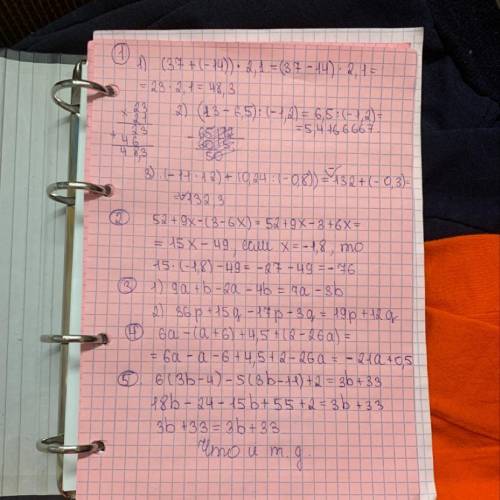 1
1) (37 + (-14)) · 2,1 = (37 - 14) · 2,1 =
= 23 · 2,1 = 48,3
× 23
21
+ 23
46
48,3
2) (13 - 6,5) : (-1,2) = 6,5 : (-1,2) =
= 5,4166667.
- 65 | 12
60 | 5
50
3) (-11 · 12) + (0,24 : (-0,8)) = 132 + (-0,3) =
= 132,3
2 52 + 9x - (3 - 6x) = 52 + 9x - 3 + 6x =
= 15x - 49, если x = -1,8, то
15 · (-1,8) - 49 = -27 - 49 = -76
3 1) 9a + b - 2a - 4b = 7a - 3b
2) 36p + 15q - 17p - 3q = 19p + 12q
4 6a - (a + 6) + 4,5 + (2 - 26a) =
= 6a - a - 6 + 4,5 + 2 - 26a = -21a + 0,5
5 6(3b - 4) - 5(3b - 11) + 2 = 3b + 33
18b - 24 - 15b + 55 + 2 = 3b + 33
3b + 33 = 3b + 33
Что и т.д.